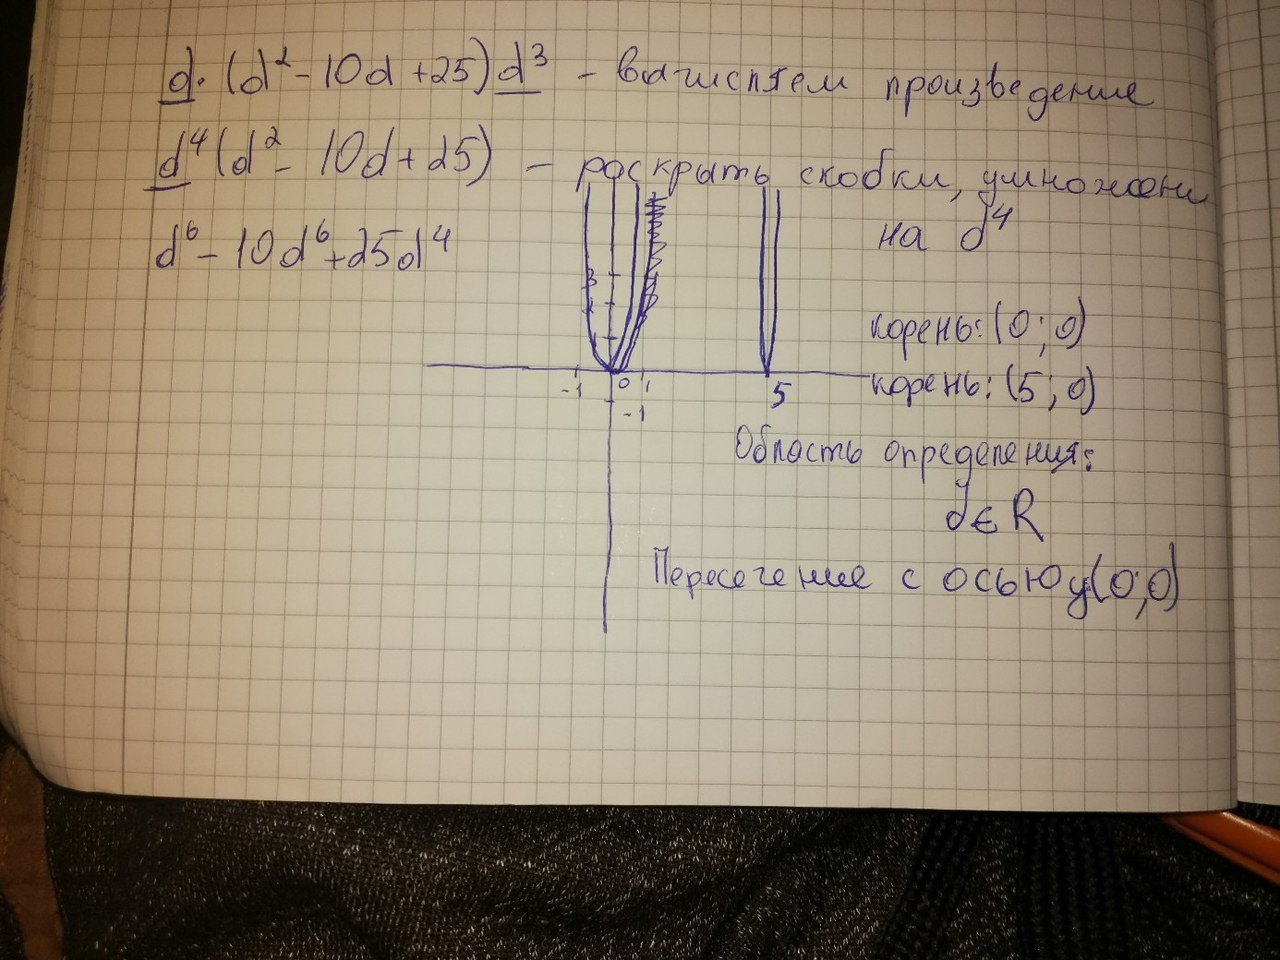 d·(d²-10d+25)d³ - вычисляем произведение
d⁴(d²-10d+25) - роскрыть скобки, умножени
на d⁴
d⁶-10d⁶+25d⁴
3
корень: (0;0)
-1 0 1 5
корень: (5;0)
-1
Область определения:
d∈R
Пересечение с осью y(0;0)